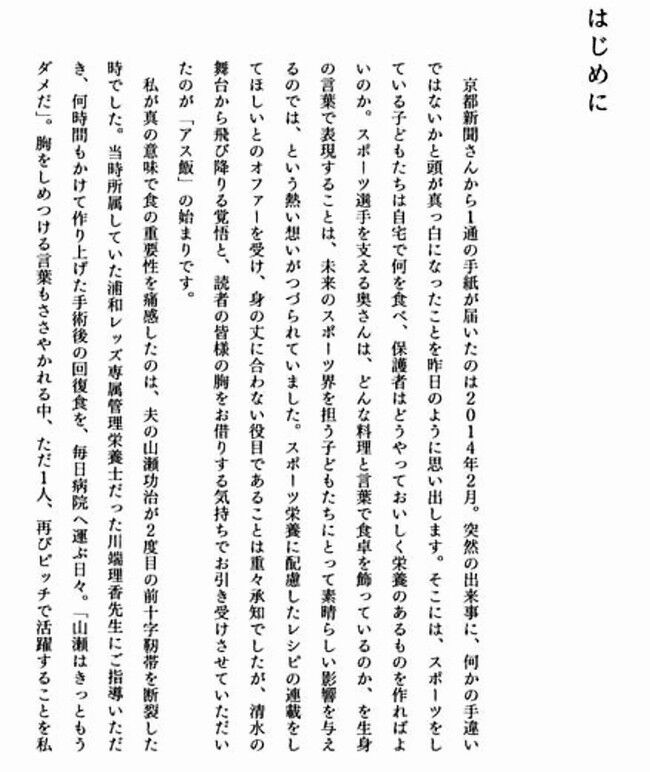 はじめに
京都新聞さんから1通の手紙が届いたのは2014年2月。突然の出来事に、何かの手違い
ではないかと頭が真っ白になったことを昨日のように思い出します。そこには、スポーツをし
ている子どもたちは自宅で何を食べ、保護者はどうやっておいしく栄養のあるものを作ればよ
いのか。スポーツ選手を支える奥さんは、どんな料理と言葉で食卓を飾っているのか、を生身
の言葉で表現することは、未来のスポーツ界を担う子どもたちにとって素晴らしい影響を与え
るのでは、という熱い想いがつづられていました。スポーツ栄養に配慮したレシピの連載をし
てほしいとのオファーを受け、身の丈に合わない役目であることは重々承知でしたが、清水の
舞台から飛び降りる覚悟と、読者の皆様の胸をお借りする気持ちでお引き受けさせていただい
たのが「アス飯」の始まりです。
私が真の意味で食の重要性を痛感したのは、夫の山瀬功治が2度目の前十字靭帯を断裂した
時でした。当時所属していた浦和レッズ専属管理栄養士だった川端理香先生にご指導いただ
き、何時間もかけて作り上げた手術後の回復食を、毎日病院へ運ぶ日々。「山瀬はきっともう
ダメだ」。胸をしめつける言葉もささやかれる中、ただ1人、再びピッチで活躍することを私